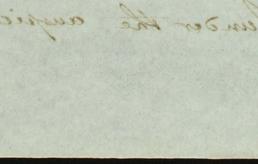 under the auspic